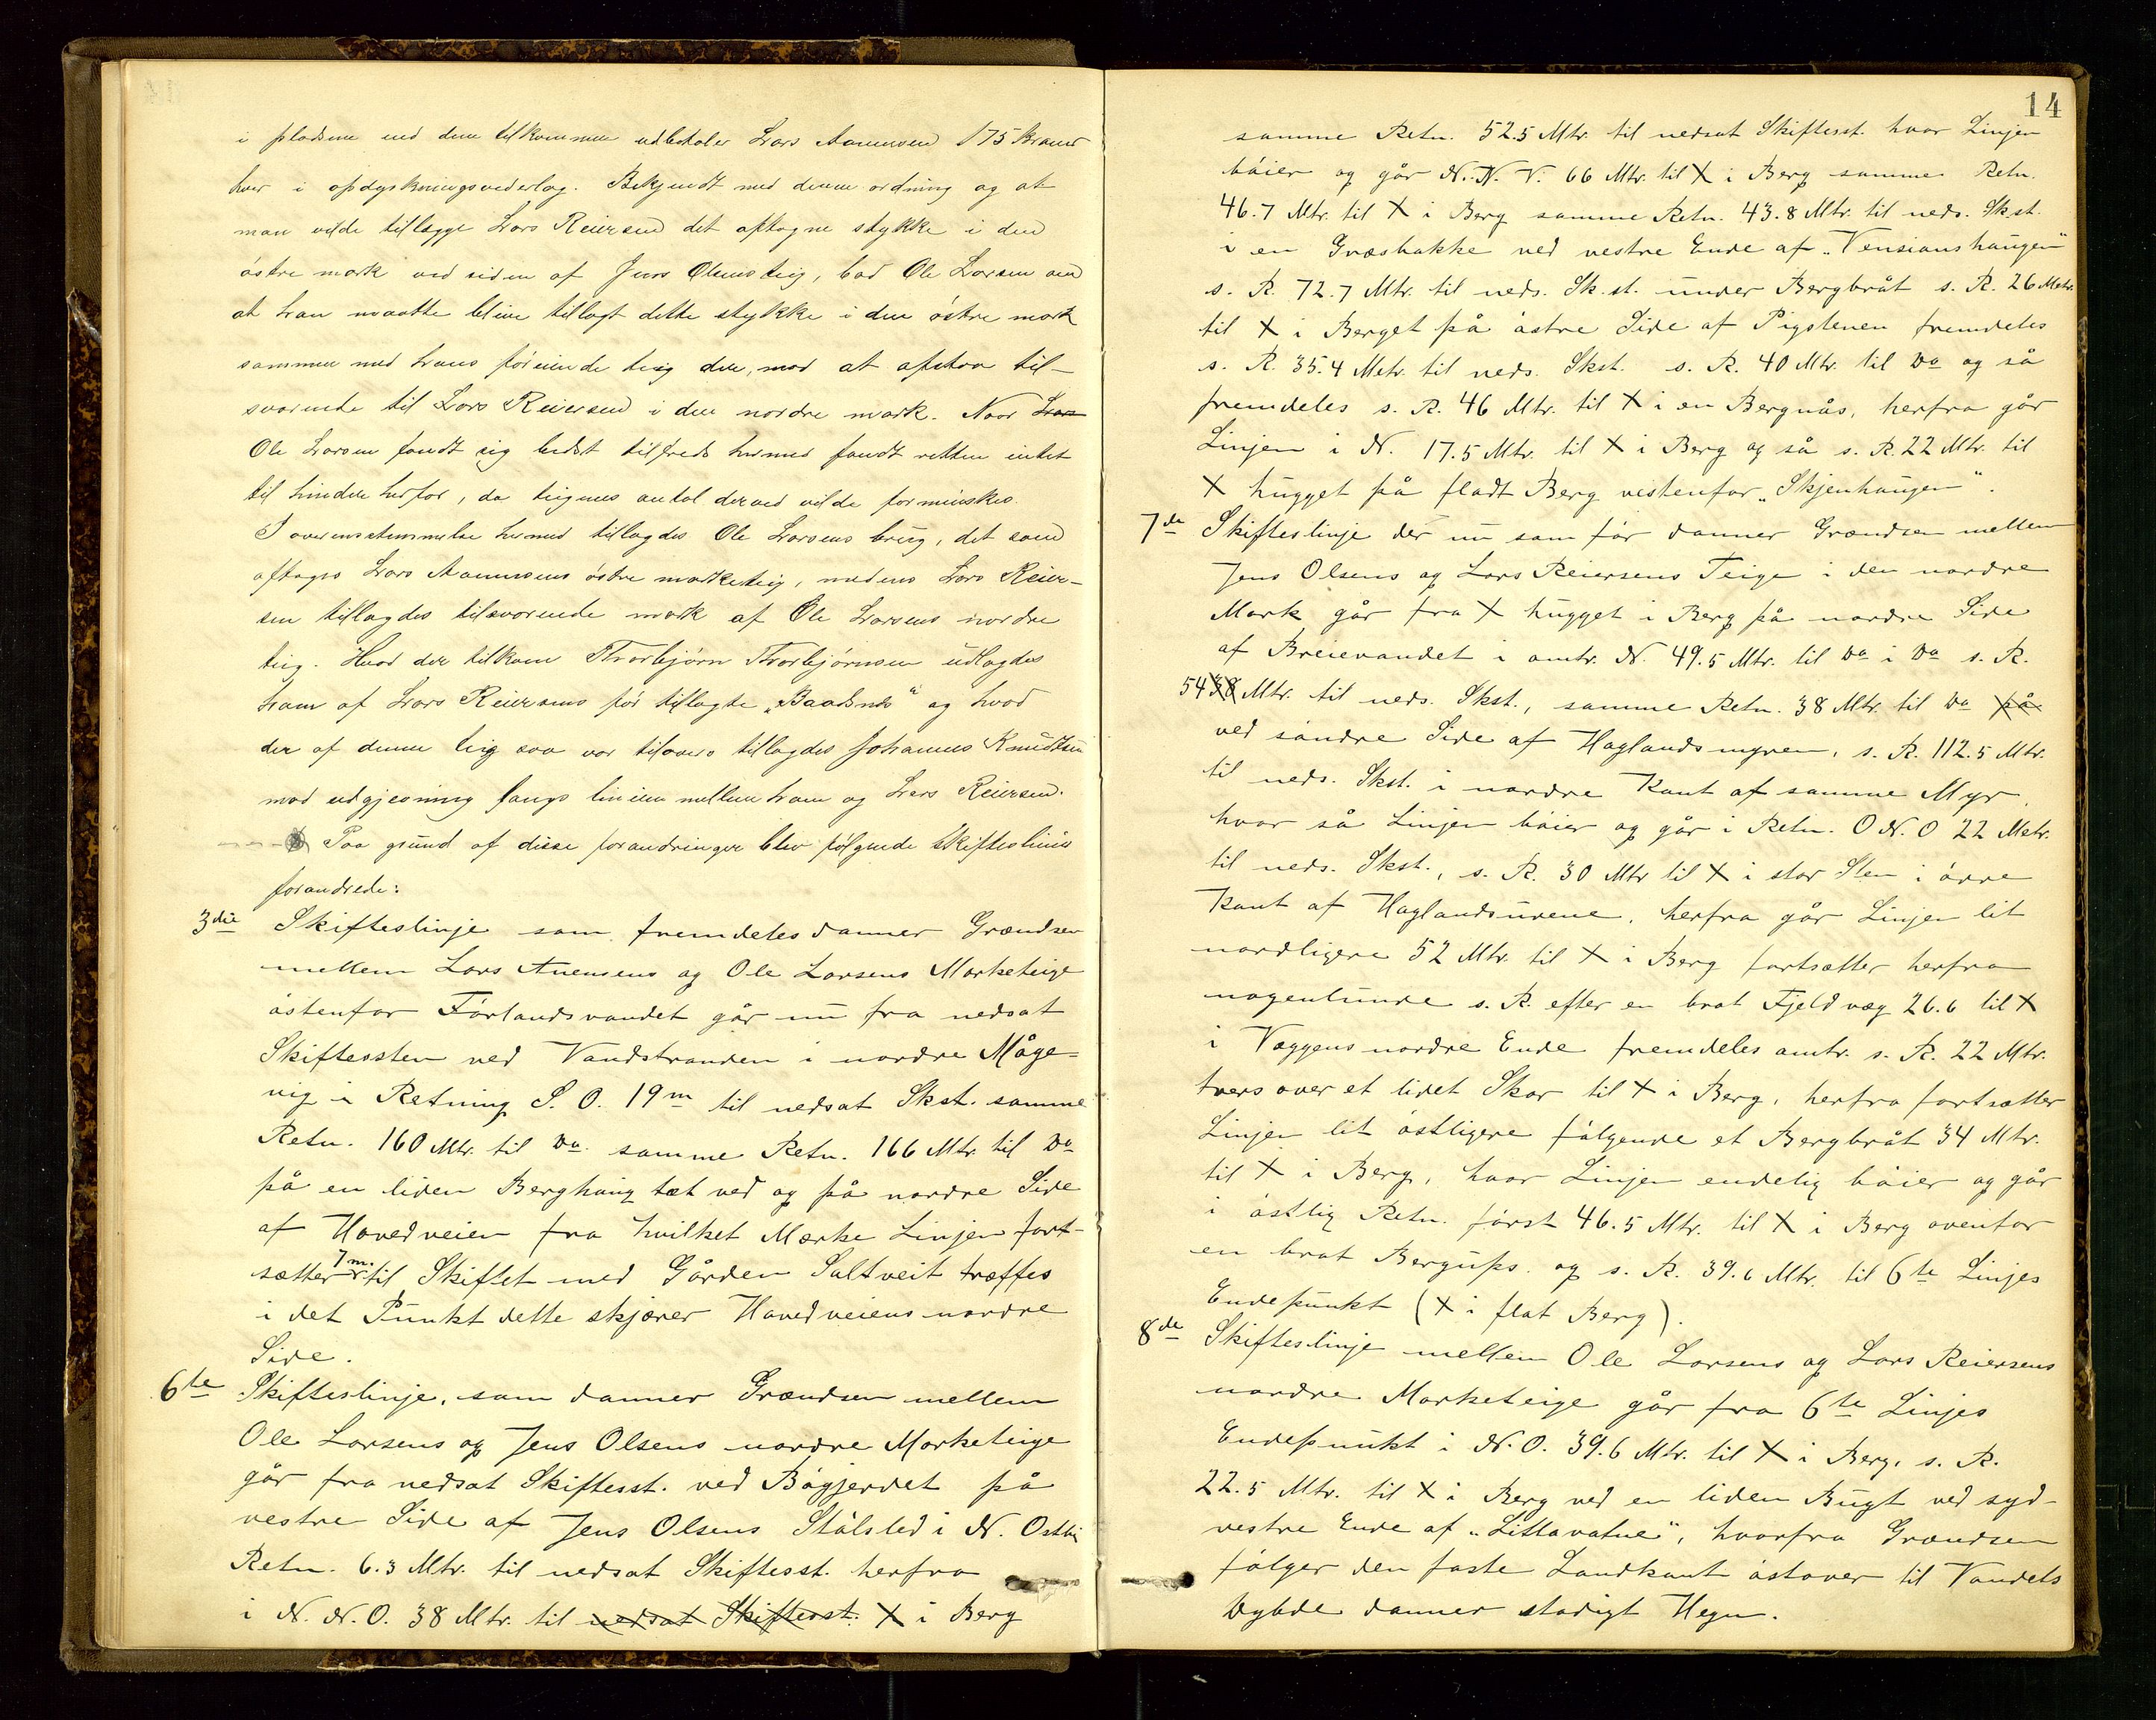 i pladsene end dem tilkommer udbetaler Lars Aanensen 175 Kroner
hver i opdyrkningsvederlag. Bekjendt med denne ordning og at
man vilde tillægge Lars Reiersen det aftagne stykke i den
östre mark ved siden af Jens Olsens teig, bad Ole Larsen om
at han maatte blive tillagt dette stykke i den östre mark
sammen med hans foreiende teig der, mod at afstaa til-
svarende til Lars Reiersen i den nordre mark. Naar Lars
Ole Larsen fandt sig bedst tilfreds hermed fandt retten intet
til hinder herfor, da teigenes antal derved vilde formindskes.
I overensstemmelse hermed tillagdes Ole Larsens brug, det som
aftages Lars Aanensens östre marketeig, medens Lars Reier-
sen tillagdes tilsvarende mark af Ole Larsens nordre
teig. Hvad der tilkom Thorbjörn Thorbjörnsen udlagdes
ham af Lars Reiersens för tillagte „Baadsnes" og hvad
der af denne teig saa var tilovers tillagdes Johannes Knudsen
mod udgjerning langs linien mellem ham og Lars Reiersen.
Paa grund af disse forandringer blev følgende Skifteslinier
forandrede:
3die Skifteslinje som fremdeles danner Grændsen
mellem Lars Anensens og Ole Larsens Marketeige
östenfor Förlandsvandet går nu fra nedsat
Skiftessten ved Vandstranden i nordre Måge-
vig i Retning S. O. 19m til nedsat Skst. samme
Retn. 160 Mtr. til Do. samme Retn. 166 Mtr. til Do
på en liden Berghaug tæt ved og på nordre Side
af Hovedveien fra hvilket Mærke Linjen fort-
sætter 7 m. til Skiftet med Gården Saltveit træffes
i det Punkt dette skjærer Hovedveiens nordre
Side.
6te Skifteslinje, som danner Grændsen mellem
Ole Larsens og Jens Olsens nordre Marketeige
går fra nedsat Skiftesst. ved Bögjerdet på
vestre Side af Jens Olsens Stölsled i N. Ostlig
Retn. 6.3 Mtr. til nedsat Skiftesst. herfra
i N. N. O. 38 Mtr. til nedsat Skiftesst. X i Berg
14
samme Retn. 52.5 Mtr. til nedsat Skiftesst. hvor Linjen
böier og går N. N. V. 66 Mtr. til X i Berg samme Retn.
46.7 Mtr. til X i Berg samme Retn. 43.8 Mtr. til neds. Skst.
i en Græsbakke ved vestre Ende af „Vensianshaugen"
s. R. 72.7 Mtr. til neds. Sk. st. under Bergbråt s. R. 26 Metr.
til X i Berget på östre Side af Pigstenen fremdeles
s. R. 35.4 Metr. til neds. Skst. s. R. 40 Mtr. til Do og så
fremdeles s. R. 46 Mtr. til X i en Bergnås, herfra går
Linjen i N. 17.5 Mtr. til X i Berg og så s. R. 22 Mtr. til
X hugget på fladt Berg vestenfor „Skjenhaugen".
7de Skifteslinje der nu som för danner Grændsen mellem
Jens Olsens og Lars Reiersens Teige i den nordre
Mark går fra X hugget i Berg på nordre Side
af Breievandet i omtr. N. 49.5 Mtr. til Do i Do s. R.
54 38 Mtr. til neds. Skst., samme Retn. 38 Mtr. til Do på
ved söndre Side af Haglandsmyren, s. R. 112.5 Mtr.
til neds. Skst. i nordre Kant af samme Myr,
hvor så Linjen böier og går i Retn. O N. O 22 Metr.
til neds. Skst., s. R. 30 Mtr til X i stor Sten i övre
Kant af Haglandsurene, herfra går Linjen lit
nordligere 52 Mtr. til X i Berg fortsætter herfra
nogenlunde s. R. efter en brat Fjeldvæg 26.6 til X
i Væggens nordre Ende fremdeles omtr. s. R. 22 Mtr.
tvers over et lidet Skar til X i Berg, herfra fortsætter
Linjen lit östligere fölgende et Bergbråt 34 Mtr.
til X i Berg, hvor Linjen endelig böier og går
i östlig Retn. först 46.5 Mtr. til X i Berg ovenfor
en brat Bergups. og s. R. 39.6 Mtr. til 6te Linjes
Endepunkt (X i flat Berg).
8de Skifteslinje mellem Ole Larsens og Lars Reiersens
nordre Marketeige går fra 6te Linjes
Endepunkt i N. O. 39.6 Mtr. til X i Berg, s. R.
22.5 Mtr. til X i Berg ved en liden Bugt ved syd-
vestre Ende af „Littavatne", hvorfra Grændsen
fölger den faste Landkant östover til Vandets
Dybde danner stadigt Hegn.